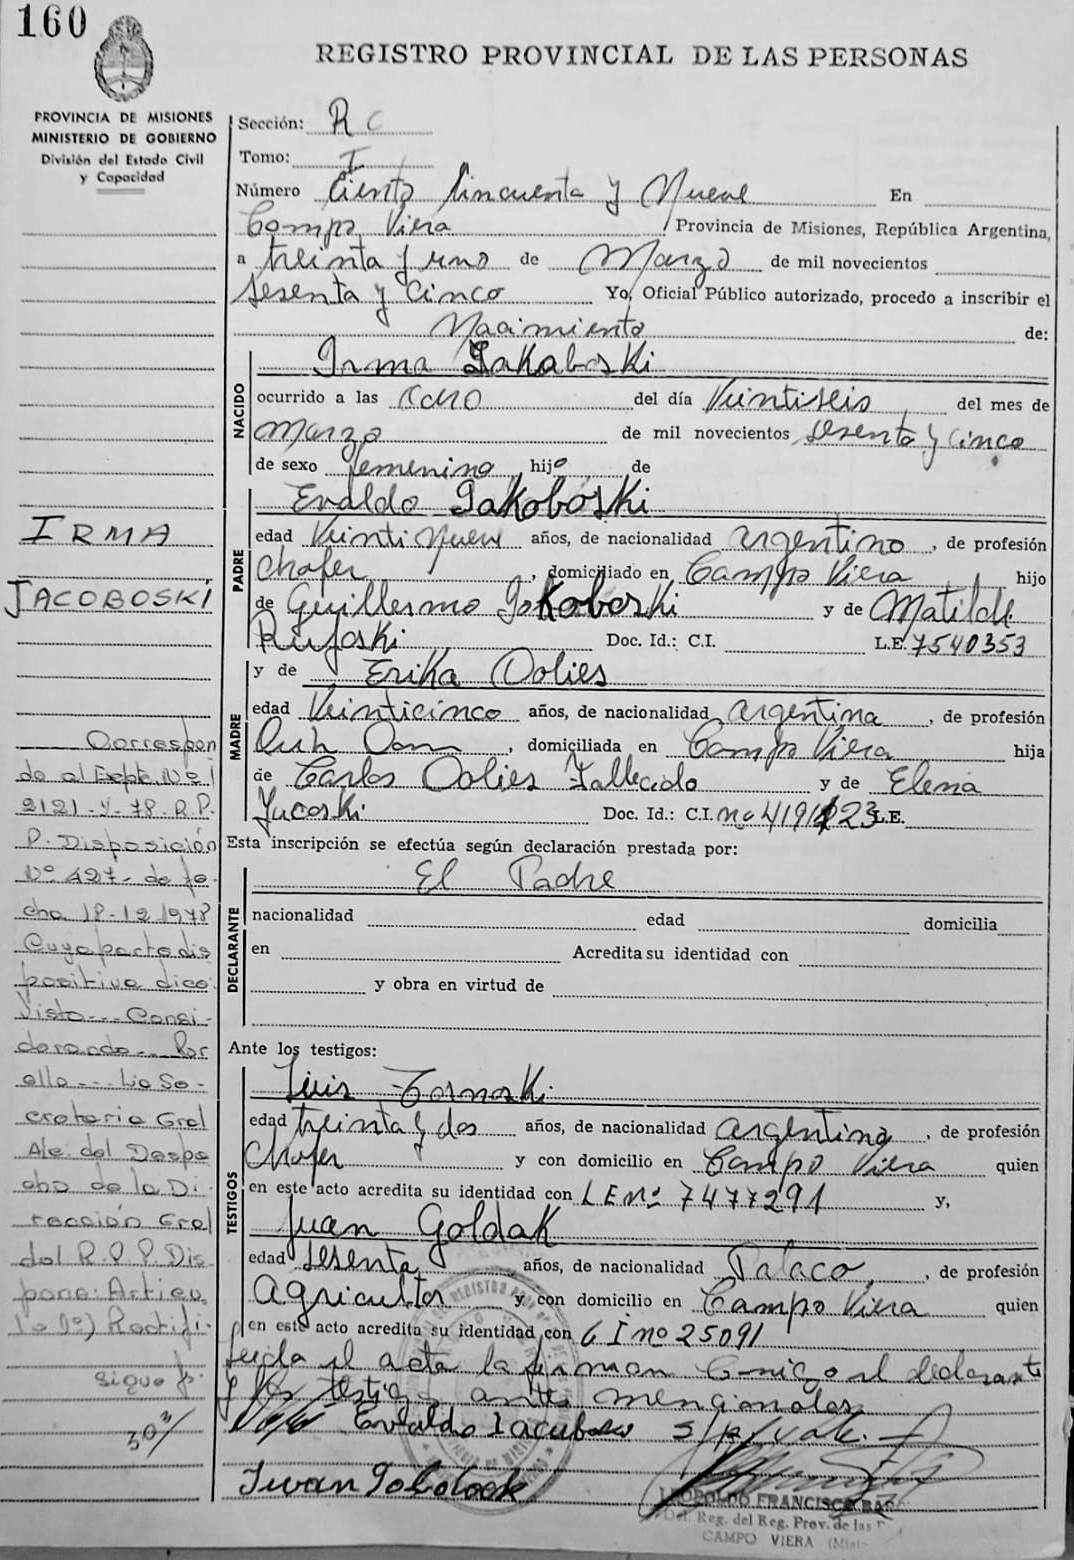 160
REGISTRO PROVINCIAL DE LAS PERSONAS
PROVINCIA DE MISIONES
MINISTERIO DE GOBIERNO
División del Estado Civil
y Capacidad
Sección: R C
Tomo: I
Número Ciento Cincuenta y Nueve En
Campo Viera, Provincia de Misiones, República Argentina,
a treinta y uno de Marzo de mil novecientos
sesenta y cinco Yo, Oficial Público autorizado, procedo a inscribir el
Nacimiento de:
NACIDO
Irma Jakaboski
ocurrido a las Ocho del día Veintiseis del mes de
Marzo de mil novecientos sesenta y cinco
de sexo femenino hijo de
PADRE
Evaldo Jakoboski
edad Veintinueve años, de nacionalidad argentino, de profesión
Chofer, domiciliado en Campo Viera hijo
de Guillermo Jakoboski y de Matilde
Doc. Id.: C.I. L.E. 7540353
MADRE
y de Erika Oolies
edad Veinticinco años, de nacionalidad argentina, de profesión
domiciliada en Campo Viera hija
de Carlos Oolies Fallecido y de Elena
Jucoski Doc. Id.: C.I. L.E.
Esta inscripción se efectúa según declaración prestada por:
DECLARANTE
El Padre
nacionalidad edad domicilia
en Acredita su identidad con
y obra en virtud de
Ante los testigos:
TESTIGOS
Luis
edad treinta y dos años, de nacionalidad argentino, de profesión
Chofer y con domicilio en Campo Viera quien
en este acto acredita su identidad con L E nº 7477291 y,
Juan Goldak
edad sesenta años, de nacionalidad Polaco, de profesión
Agricultor y con domicilio en Campo Viera quien
en este acto acredita su identidad con C I nº 25091
leida el acta la firman Conmigo el declarante
y los testigos antes mencionados
Evaldo
LEOPOLDO FRANCISCO
Del. Reg. del Reg. Prov. de las
CAMPO VIERA
IRMA
JACOBOSKI
Correspon
de al Expte Nº
2121-Y-78-R.P.
P. Disposición
Nº 427- de fe-
cha 18-12-1978
Cuya parte dis
positiva dice:
Visto--- Consi-
derando--- Por
ello--- La Se-
cretaria Gral
Ale. del Despa
cho de la Di
rección Gral
del R.P.P. Dis
pone: Artícu
lo 1º) Rectifi-
sigue f: